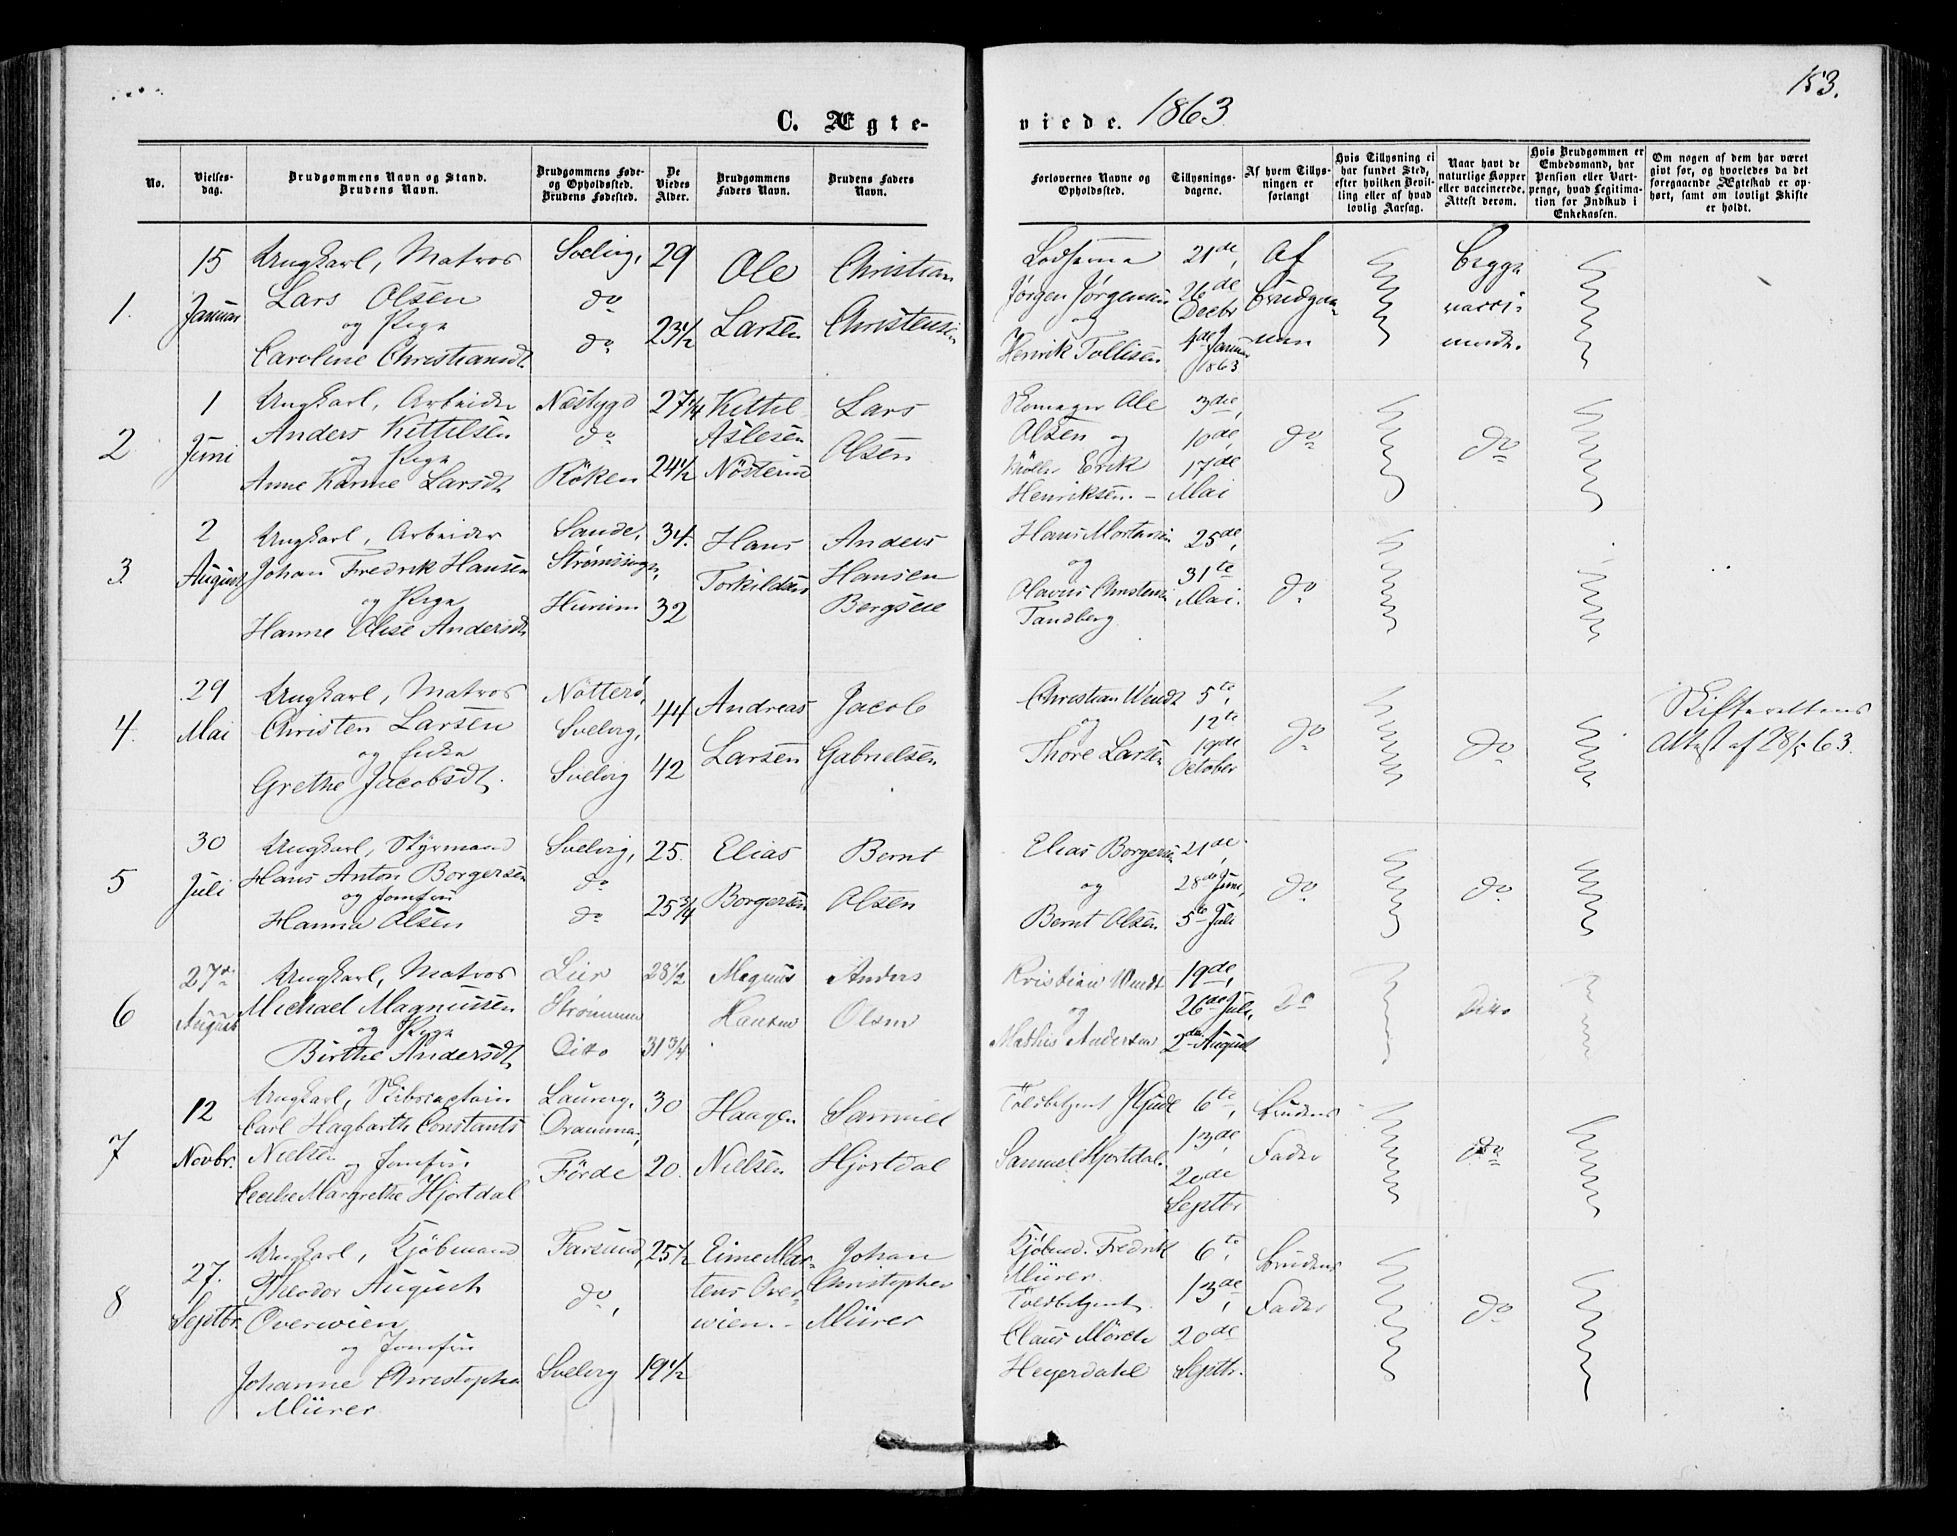 153.
C. Ægte-
viede. 1863
No.
Vielses-
dag.
Brudgommens Navn og Stand.
Brudens Navn.
Brudgommens Føde-
og Opholdssted.
Brudens Fødested.
De
Viedes
Alder.
Brudgommens
Faders Navn.
Brudens Faders
Navn.
Forlovernes Navne og
Opholdssted.
Tillysnings-
dagene.
Af hvem Tillys-
ningen er
forlangt
Hvis Tillysning ei
har fundet Sted,
efter hvilken Bevil-
ling eller af hvad
lovlig Aarsag.
Naar havt de
naturlige Kopper
eller vaccinerede.
Attest derom.
Hvis Brudgommen er
Embedsmand, har
Pension eller Vart-
penge, hvad Legitima-
tion for Indskud i
Enkekassen.
Om nogen af dem har været
gift før, og hvorledes da det
foregaaende Ægteskab er op-
hørt, samt om lovligt Skifte
er holdt.
1.
15
Januar
Ungkarl, Matros
Lars Olsen
og Pige
Caroline Christiansdt.
Svelvig,
do
do
29
23½
Ole
Larsen
Christian
Christensen
Lodserne
Jørgen Jørgensen
og
Henrik Tollisen
21de,
26de
Decbr
4de Januar
1863
Af
Brudgom-
men
Begge
vacci-
nerede.
2
1
Juni
Ungkarl, Arbeider
Anders Kittilsen
og Pige
Anne Karine Larsdt.
Næsbygd
do
Röken
27¼
24½
Kittil
Aslesen
Nösterud
Lars
Olsen
Skomager Ole
Olsen og
Møller Erik
Henriksen. -
3die,
10de,
17de
Mai
do
do
3.
2
August
Ungkarl, Arbeider
Johan Fredrik Hansen
og Pige
Hanne Olise Andersdt.
Sande,
Hurum
34.
32
Hans
Torkildsen
Anders
Hansen
Bergsen
Hans Mortensen
og
Olavus Christensen
Tandberg
25de,
31te
Mai.
do
4.
29
Mai
Ungkarl, Matros
Christen Larsen
og Enke
Grethe Jacobsdt.
Nötterö,
Svelvig,
Svelvig
44
42
Andreas
Larsen
Jacob
Gabrielsen
Christian Wendt
og
Thore Larsen
5te,
12te
19de
October
do
do
Skifterettens
Attest af 28/5 63.
5
30
Juli
Ungkarl, Styrmand
Hans Anton Borgersen
og Jomfru
Hanna Olsen
Svelvig,
do
do
25.
25¾
Elias
Borgersen
Bernt
Olsen
Elias Borgersen
og
Bernt Olsen
21de,
28de Juni,
5te Juli
do
do
6
27de
August
Ungkarl, Matros
Michael Magnussen
og Pige
Birthe Andersdt.
Lier
Strømmen
Ditto
28½
31¾
Magnus
Hansen
Anders
Olsen
Kristian Wendt
og
Mathis Andersen
19de,
26de Juli,
2den August
Do
Ditto
7
12
Novbr.
Ungkarl, Skibscaptain
Carl Hagbarth Constants
Nielsen
og Jomfru
Cecilie Margrethe Hjortdal
Laurvig,
Drammen,
Förde
30
20.
Haagen
Nielsen
Samuel
Hjortdal
Toldbetjent
Samuel Hjortdal.
6te,
13de,
20de
Septbr
Brudens
Fader
do
8
27.
Septbr.
Ungkarl, Kjöbmand
Theodor August
Overwien
og Jomfru
Johanne Christopha
Mürer
Farsund,
do,
Svelvig
25½
19½
Eime Mar-
tens Over-
wien. -
Johan
Christopher
Mürer
Kjöbmd. Fredrik
Mürer
Toldbetjent
Claus Mörch
Heyerdahl
6te,
13de,
20de
Septbr.
Brudens
Fader
do